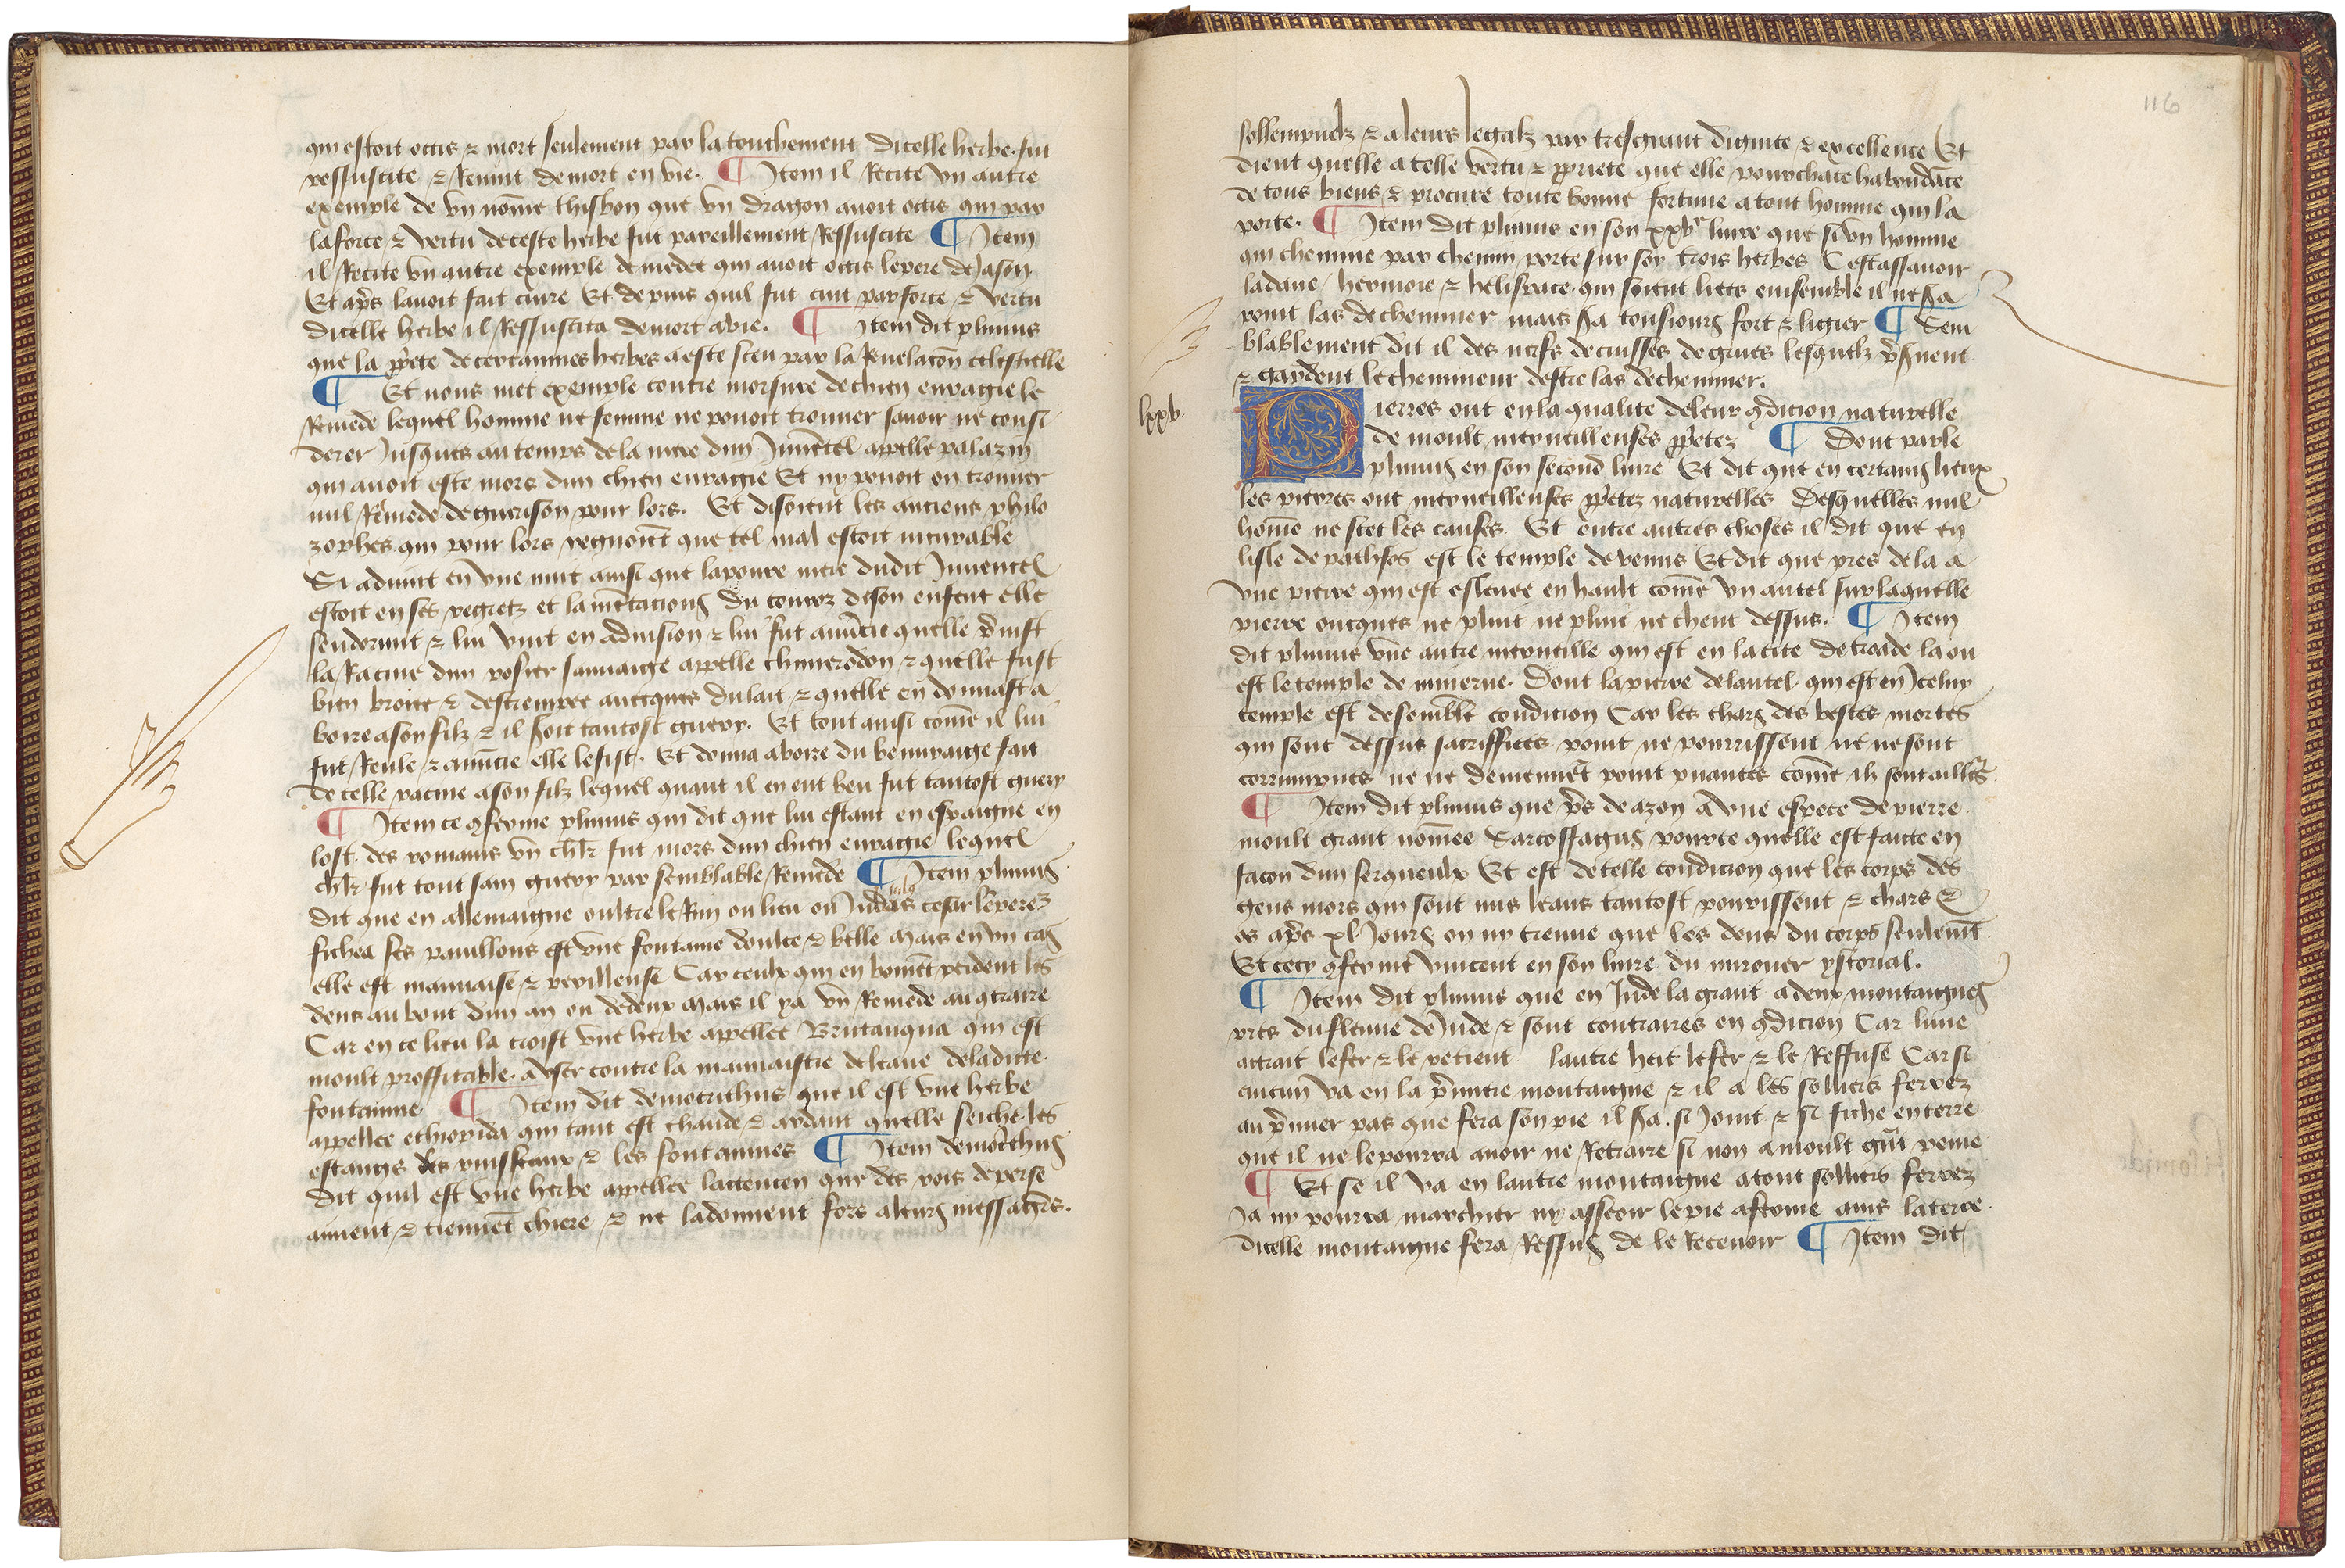 qui estoit occis & mort seulement par latouchement dicelle herbe fut
ressuscite & Revint de mort en vie. ¶ Item il Recite vn autre
exemple de vn nōme thisbon que vn dragon auoit occis qui par
la force & vertu de ceste herbe fut pareillement Ressuscite ¶ Item
il Recite vn autre exemple de medee qui auoit occis le pere de Jason
Et ap̄s lauoit fait cuire Et depuis quil fut cuit par force & vertu
dicelle herbe il Ressuscita de mort a vie. ¶ Item dit plinius
que la p̄pete de certaines herbes a este sceu par la Reuelacōn celestielle
¶ Et nous met exemple contre morsure de chien enragie le
Remede lequel homme ne femme ne pouoit trouuer sauoir ne consi
derer Jusques au temps de la mere dun Juuēcel appelle palazin
qui auoit este mors dun chien enragie Et ny pouoit on trouuer
nul Remede de guerison pour lors. Et disoient les anciens philo
zophes qui pour lors regnoiēt que tel mal estoit incurable
Si aduint en vne nuit ainsi que la poure mere dudit Juuencel
estoit en ses regretz et lamētacions du courz de son enfent elle
sendormit & lui vint en aduision & lui fut anūcie quelle p̄nist
la Racine dun rosier sauuaige appelle chinerodon & quelle fust
bien broiee & destrempee auecques du lait & quelle en donnast a
boire a son filz & il seroit tantost guery. Et tout ainsi cōme il lui
fut Reule & anūcie elle le fist. Et donna a boire du beuuraige fait
de celle racine a son filz lequel quant il en eut beu fut tantost guery
¶ Item ce cōferme plinius qui dit que lui estant en espaigne en
lost des romains vn chl̄r fut mors dun chien enragie lequel
chl̄r fut tout sain guery par semblable Remede ¶ Item plinius
dit que en allemaigne oultre le Rin ou lieu ou Judas cesar lempere2
fichea ses pauillons est vne fontaine doulce & belle Mais en vn cas
elle est mauuaise & perilleuse Car ceulx qui en boiuēt perdent les
dens au bout dun an ou de deux Mais il ya vn Remede au cōtraire
Car en ce lieu la croist vne herbe appellee Britanqua qui est
moult proffitable a vser contre la mauuaistie de leaue de la dicte
fontainne ¶ Item dit democrithus que il est vne herbe
appellee ethiopida qui tant est chaude & ardant quelle seiche les
estangs les ruisseaux & les fontainnes ¶ Item democrithus
dit quil est vne herbe appellee lactencen que des rois de perse
aiment & tiennēt chiere & ne la donnent fors a leurs messagiers.
116
sollempnelz & a leurs legatz par tresgrant dignite & excellence Et
dient quelle a telle vertu & p̄priete que elle pourchace habondāce
de tous biens & procure toute bonne fortune a tout homme qui la
porte. ¶ Item dit plinius en son xxvᵉ liure que si vn homme
qui chemine par chemin porte sur soy trois herbes Cestassauoir
ladane hermoie & helispace qui soient liees ensemble il ne sera
point las de cheminer mais sera tousiours fort & ligier ¶ Sem
blablement dit il des nerfs de cuisses de grues lesquelz p̄seruent
& gardent le cheminent destre las de cheminer.
lxxv
Pierres ont en la qualite de leur cōdicion naturelle
de moult merueilleuses p̄pretez ¶ Dont parle
plinius en son second liure Et dit que en certains lieux
les pierres ont merueilleuses p̄pretez naturelles Desquelles nul
hōme ne scet les causes Et entre autres choses il dit que en
lisle de pathsos est le temple de venus Et dit que pres de la a
vne pierre qui est esleuee en hault cōme vn autel sur laquelle
pierre oncques ne pluit ne pluie ne cheut dessus. ¶ Item
dit plinius vne autre merueille qui est en la cite de troade la ou
est le temple de minerue Dont la pierre de lautel qui est en Jceluy
temple est de semblē condicion Car les chars des bestes mortes
qui sont dessus sacriffiees point ne pourrissent ne ne sont
corrumpues ne ne deuiennēt point puantes cōme ilz sont ailleurs
¶ Item dit plinius que p̄s de azon a vne espece de pierre
moult grant nōmee Sarcoffagus pource quelle est faicte en
facon dun serqueulx Et est de telle condicion que les corps des
gens mors qui sont mis leans tantost pourissent & chars &
os ap̄s xl Jours on ny treuue que les dens du corps seulemēt
Et cecy cōferme vincent en son liure du mirouer ystorial.
¶ Item dit plinius que en Jnde la grant a deux montaignes
pres du fleuue de Jnde & sont contraires en cōdicion Car lune
attrait le fer & le retient lautre heit le fer & le Reffuse Car se
aucun va en la p̄miere montaigne & il a les solliers ferrez
au p̄mier pas que fera son pie il sera si Joint & si fiche en terre
que il ne le pourra auoir ne Retraire si non a moult grāt peine
¶ Et se il va en lautre montaigne a tout solliers ferrez
Ja ny pourra marchier ny asseoir le pie a ferme ains la terre
dicelle montaigne fera Reffus de le Receuoir ¶ Item dit